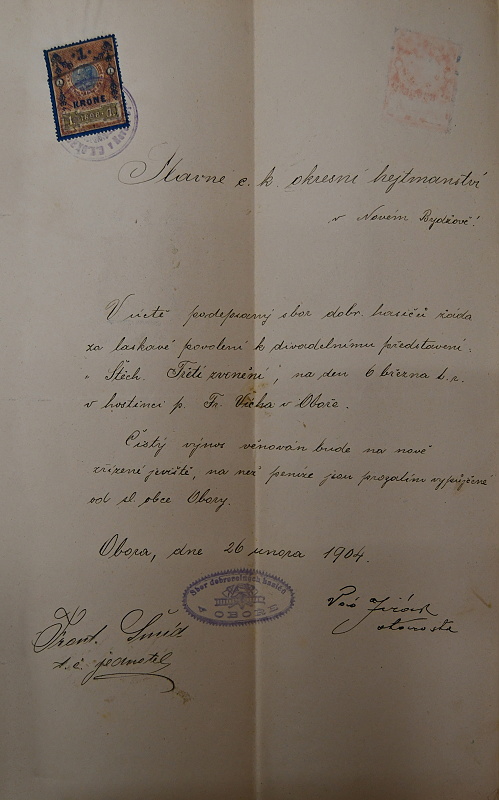 1
KRONE
Slavné c. k. okresní hejtmanství
v Novém Bydžově!
V úctě podepsaný sbor dobr. hasičů žádá
za laskavé povolení k divadelnímu představení.
„Štěch. Třetí zvonění", na den 6 března t. r.
v hostinci p. Fr. Vlčka v Oboře.
Čistý výnos věnován bude na nově
zřízené jeviště, na než peníze jsou prozatím vypůjčené
od sl. obce Obory.
Obora, dne 26 února 1904.
Sbor dobrovolných hasičů
v OBOŘE
Frant.
t. č. jednatel
starosta